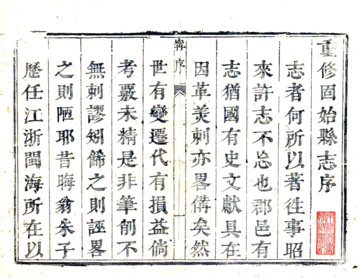 重修固始縣志序
志者何所以著徃事昭
來許志不忘也郡邑有
志猶國有史文獻具在
因革美刺亦畧備矣然
序
世有變遷代有損益倘
考覈未精是非筆創不
無剌謬矧餙之則誣畧
之則陋耶昔晦翁朱子
歷任江浙閩海所在以